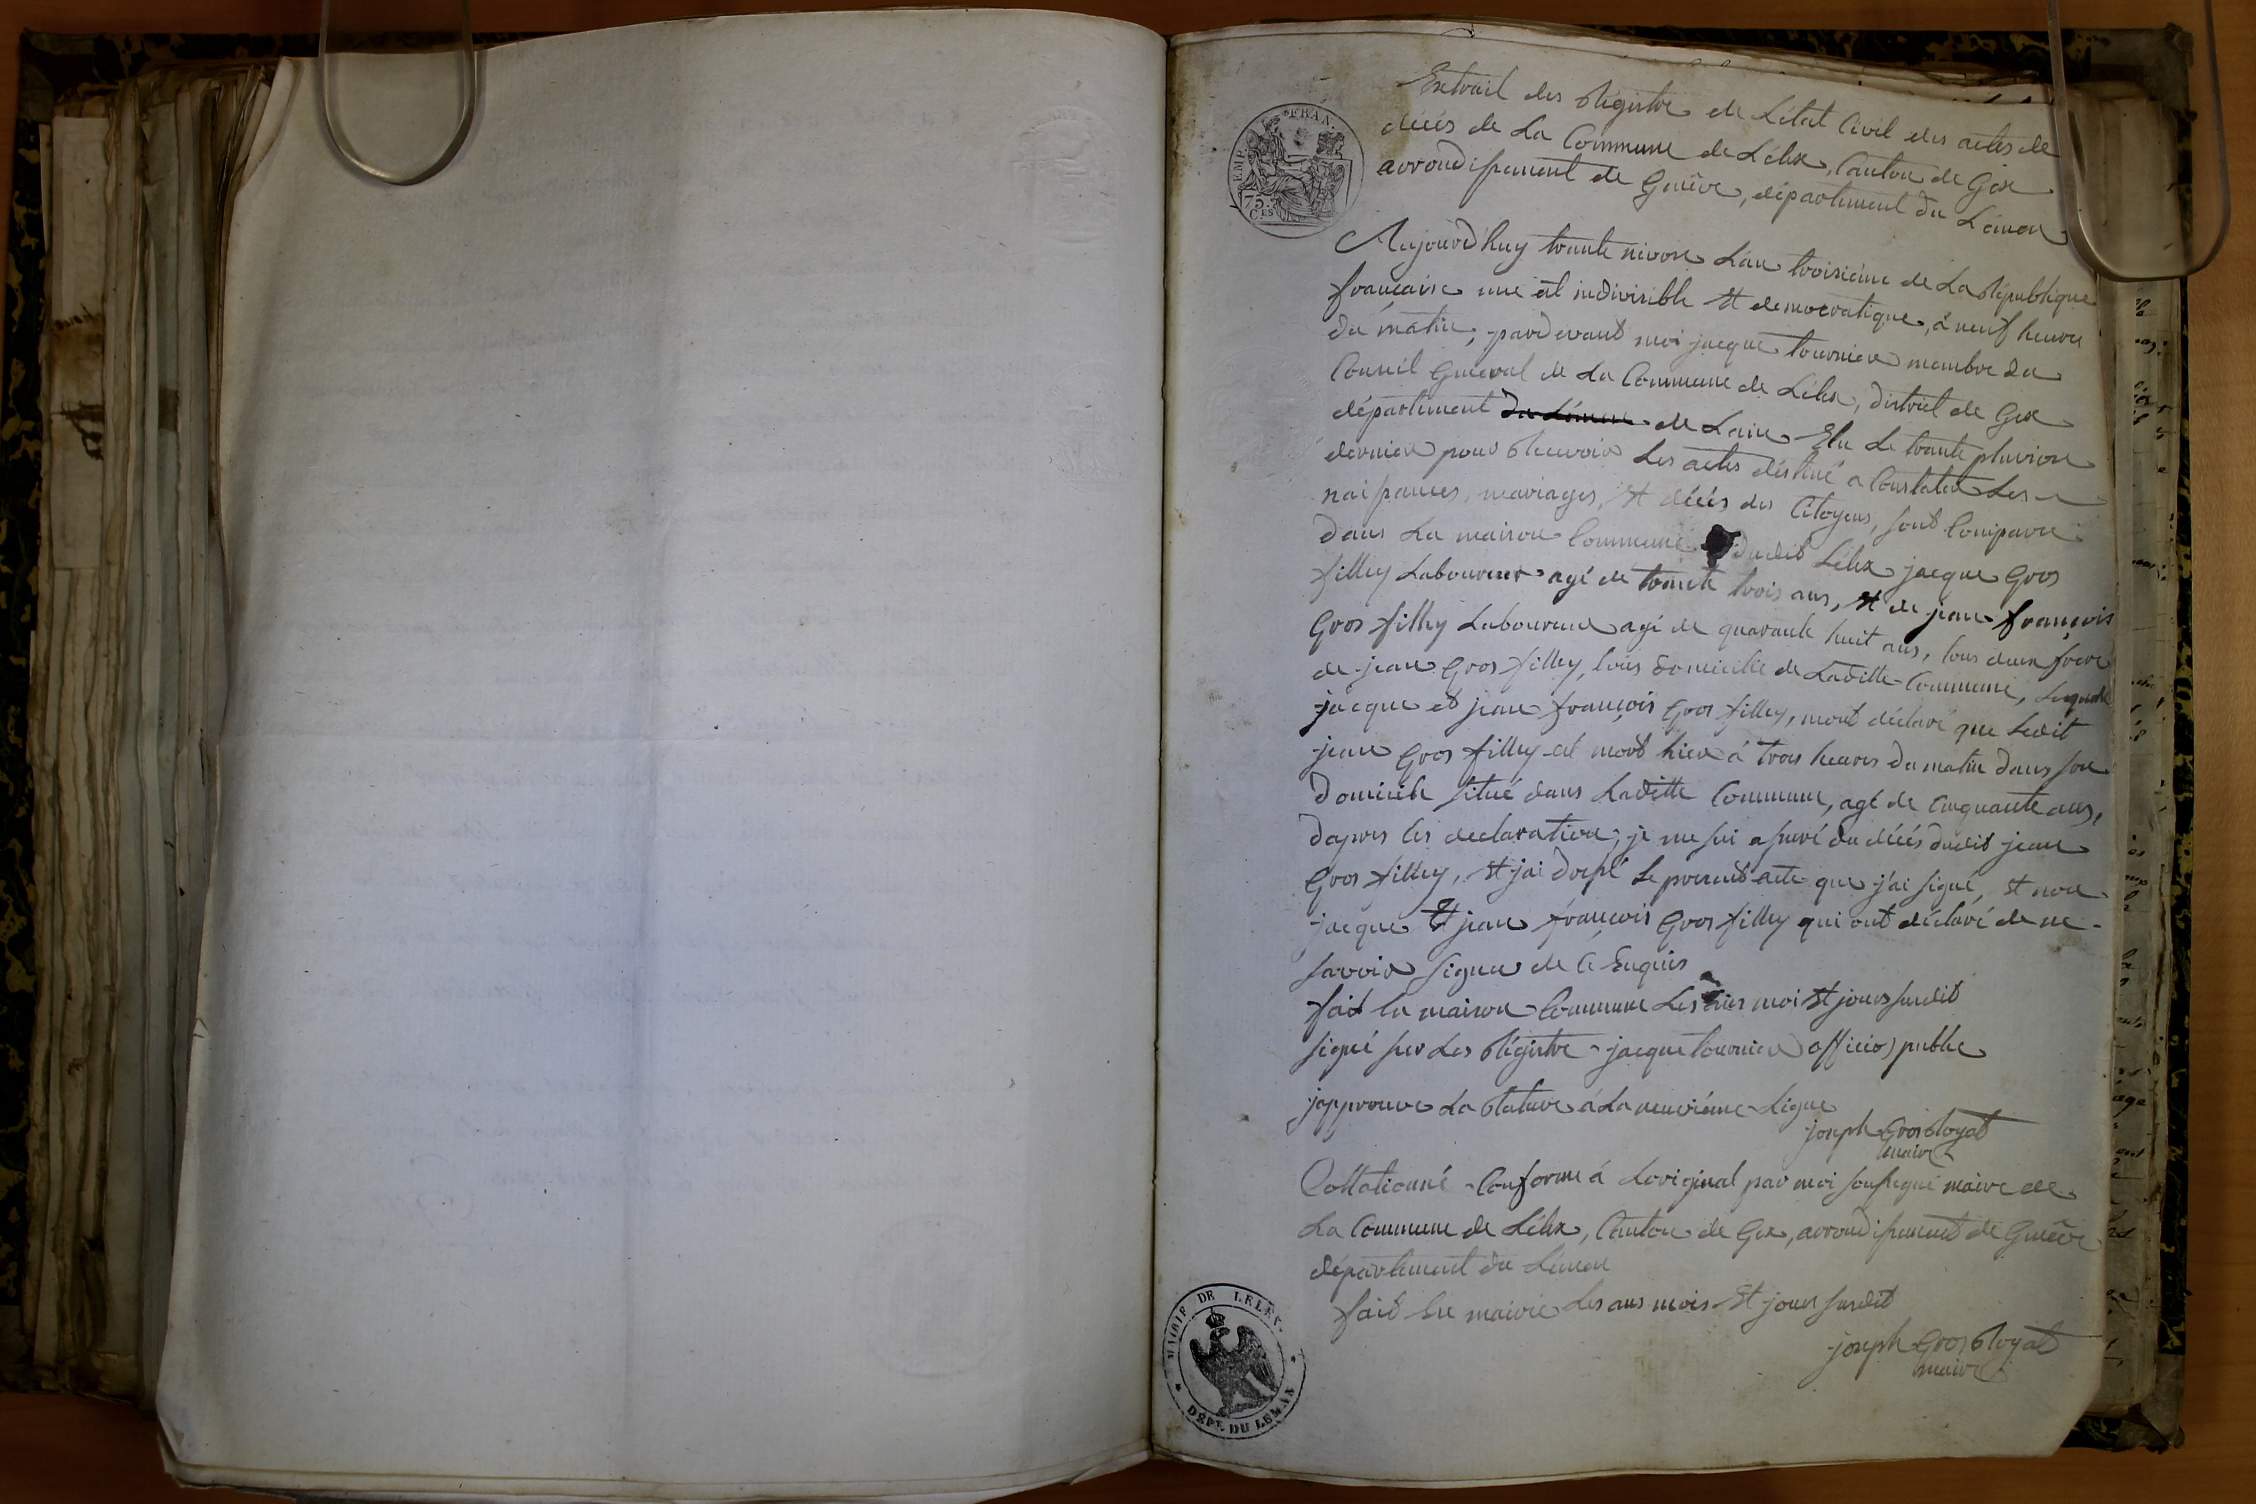 Extrait des Régistre de L'état Civil des actes de
décés de La Commune de Lélex, Canton de Gex
arrondissement de Genève, département du Léman
EMP. FRAN.
75.
C.ES
Aujourd'huy trante nivose Lan troisième de La République
francaise une et indivisible Et democratique, à neuf heures
du matin, pardevant moi jacque tournier membre du
Conseil General de La Commune de Lélex, district de Gex
département du Léman de Lain Elu Le trante pluviose
dernier pour Recevoir Les actes déstiné a Constater Les
naissances, mariages, Et décés des Citoyens, sont Comparu
dans La maison Commune dudit Lélex jacque Gros
filley Laboureur agé de trante trois ans, Et de jean françois
Gros filley Laboureur agé de quarante huit ans, tous deux frere
de jean Gros filley, tous domicilie de Laditte Commune, Lequels
jacque et jean françois Gros filley, mont déclaré que Ledit
jean Gros filley est mort hier à trois heures du matin dans son
domicile situé dans Laditte Commune, agé de Cinquante ans,
dapres les declaration, je me sui assuré du décés dudit jean
Gros filley, Et jai dressé Le present acte que j'ai signé, Et non
jacque Et jean françois Gros filley qui ont déclaré de ne
savoir signer de Ce Enquis
fait En maison Commune Les ans moi Et jours susdit
signé sur Les Régistre jacque tournier officier public
japprouve La Rature à La neuvième Ligne
joseph Gros Royat
maire
Collationné Conforme á Loriginal par moi soussigné maire de
La Commune de Lélex, Canton de Gex, arrondissement de Genève
département du Léman
fait En mairie Les ans mois Et jours susdit
joseph Gros Royat
maire
MAIRIE DE LELEX
DEPT. DU LEMAN